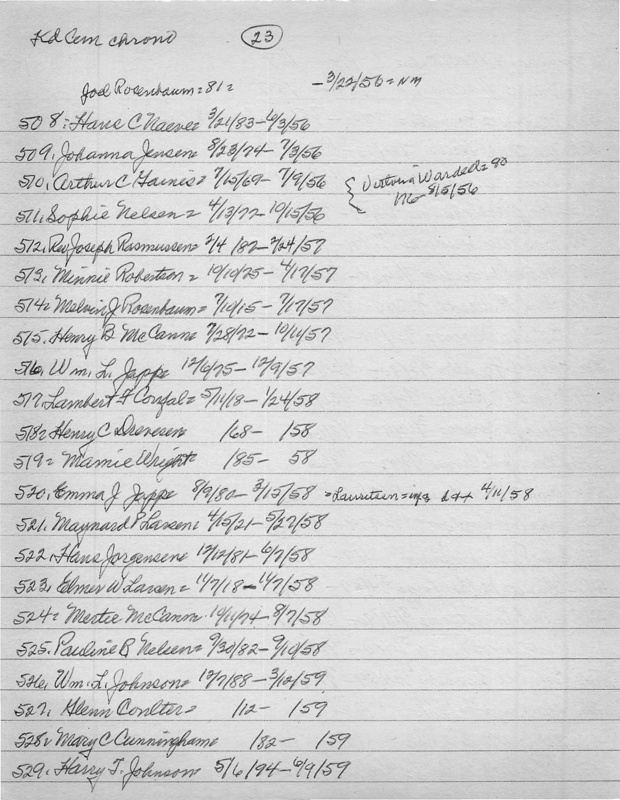 Kd Cem chrono 23
Joel Rosenbaum = 81 = - 3/22/56 = nm
508 = Hans C Naeve = 3/21/83 - 6/3/56
509, Johanna Jensen = 8/23/74 - 7/3/56
510, Arthur C Haines = 7/15/69 - 7/9/56 { Victoria Wardell = 80
8/5/56
511, Sophie Nelsen = 4/13/72 - 10/15/56
512, Rev Joseph Rasmussen = 2/4/82 - 2/24/57
513, Minnie Robertson = 10/10/75 - 4/17/57
514 = Melvin J Rosenbaum = 7/10/15 - 7/17/57
515, Henry B McCann = 7/28/72 - 10/11/57
516, Wm. L. Jappe 12/6/75 - 12/9/57
517, Lambert F = 5/11/18 - 1/24/58
518 = Henry C Drevesen /68 - /58
519 = Mamie Wright = /85 - 58
520, Emma J Jappe 8/9/80 - 3/15/58 4/11/58
521, Maynard P Larsen = 4/15/21 - 5/27/58
522, Hans Jorgensen = 12/12/81 - 6/7/58
523, Elmer W Larsen = 11/7/18 - 11/7/58
524 = McCann = 10/11/74 - 8/7/58
525, Pauline B Nelsen = 9/30/82 - 9/10/58
526, Wm. L. Johnson = 12/7/88 - 3/12/59
527, Glenn Coulter = /12 - /59
528 = Mary C Cunningham = /82 - /59
529 = Harry T. Johnson 5/6/94 - 6/9/59